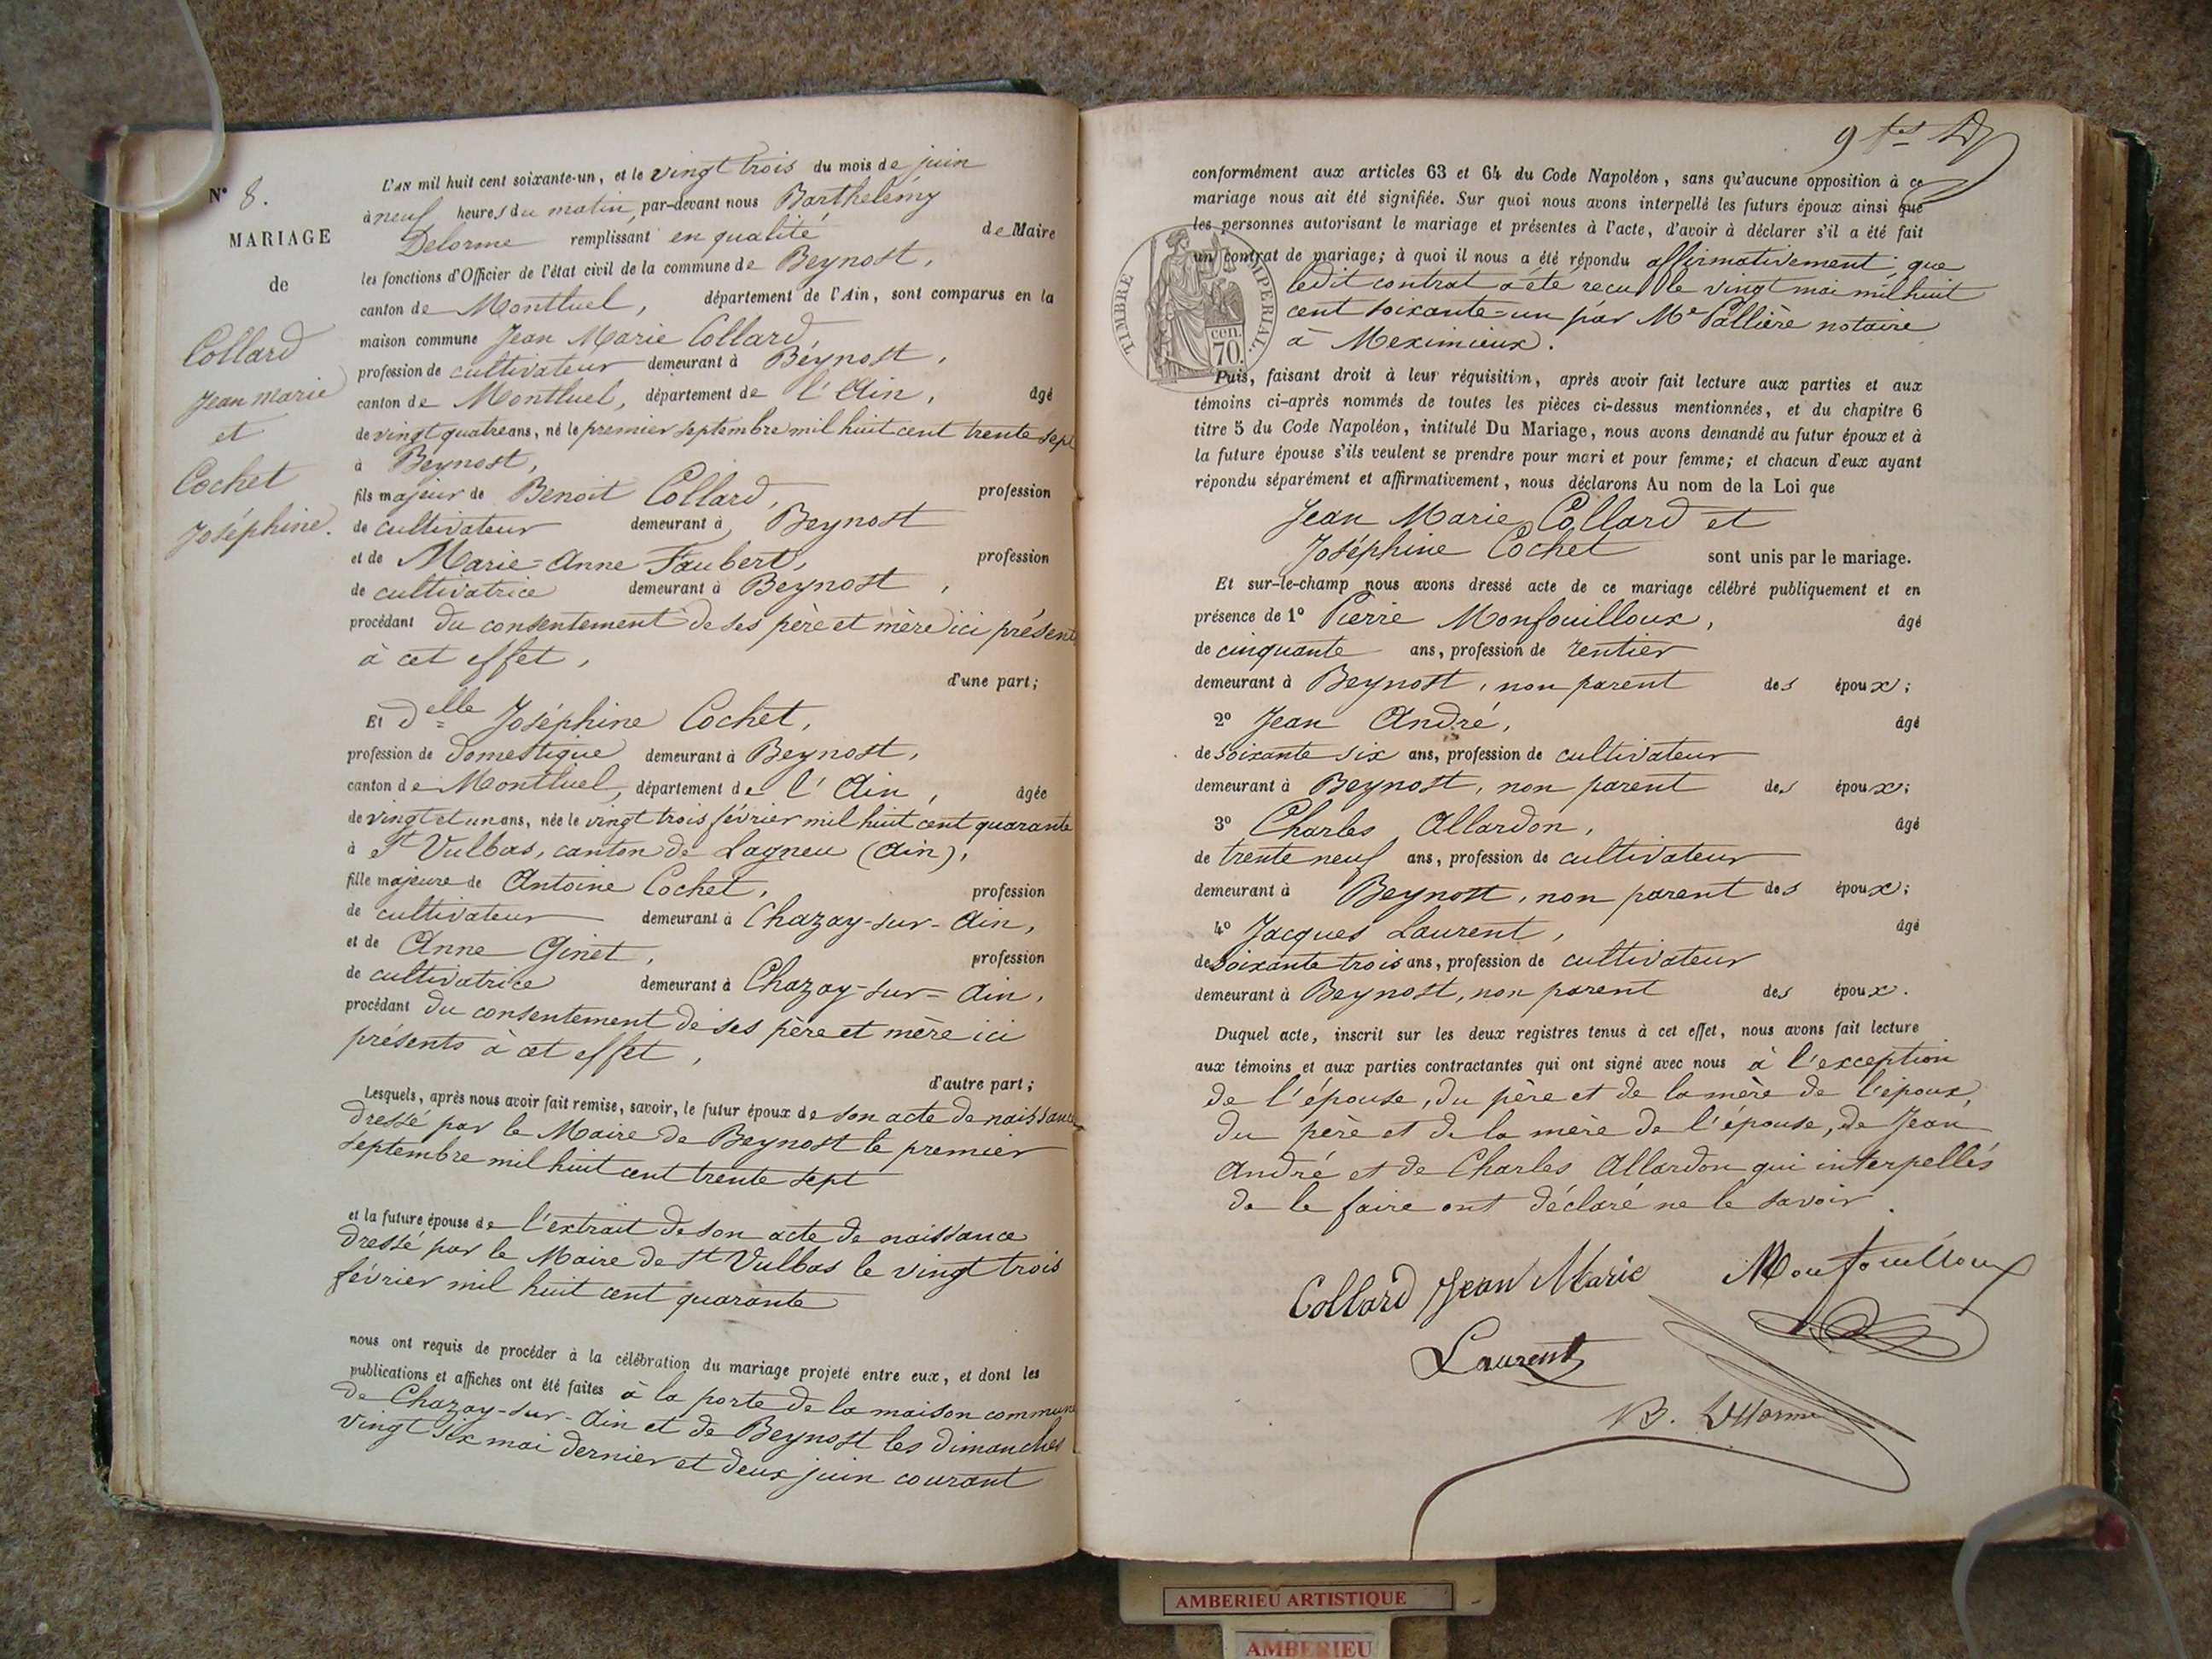 N° 8.
MARIAGE
de
Collard
Jean Marie
et
Cochet
Joséphine.
L'AN mil huit cent soixante-un, et le vingt trois du mois de juin
à neuf heures du matin, par-devant nous Barthelémy
Delorme remplissant en qualité de Maire
les fonctions d'Officier de l'état civil de la commune de Beynost,
canton de Montluel, département de l'Ain, sont comparus en la
maison commune Jean Marie Collard,
profession de cultivateur demeurant à Beynost,
canton de Montluel, département de l'Ain, âgé
de vingt quatre ans, né le premier septembre mil huit cent trente sept
à Beynost,
fils majeur de Benoit Collard, profession
de cultivateur demeurant à Beynost
et de Marie-Anne Faubert, profession
de cultivatrice demeurant à Beynost,
procédant du consentement de ses père et mère ici présents
à cet effet,
d'une part;
Et delle Joséphine Cochet,
profession de domestique demeurant à Beynost,
canton de Montluel, département de l'Ain, âgée
de vingt et un ans, née le vingt trois février mil huit cent quarante
à St Vulbas, canton de Lagneu (Ain),
fille majeure de Antoine Cochet, profession
de cultivateur demeurant à Chazay-sur-Ain,
et de Anne Ginet, profession
de cultivatrice demeurant à Chazay-sur-Ain,
procédant du consentement de ses père et mère ici
présents à cet effet,
d'autre part;
Lesquels, après nous avoir fait remise, savoir, le futur époux de son acte de naissance
dressé par le Maire de Beynost le premier
septembre mil huit cent trente sept
et la future épouse de l'extrait de son acte de naissance
dressé par le Maire de St Vulbas le vingt trois
février mil huit cent quarante
nous ont requis de procéder à la célébration du mariage projeté entre eux, et dont les
publications et affiches ont été faites à la porte de la maison commune
de Chazay-sur-Ain et de Beynost les dimanches
vingt six mai dernier et deux juin courant
conformément aux articles 63 et 64 du Code Napoléon, sans qu'aucune opposition à ce
mariage nous ait été signifiée. Sur quoi nous avons interpellé les futurs époux ainsi que
les personnes autorisant le mariage et présentes à l'acte, d'avoir à déclarer s'il a été fait
un contrat de mariage; à quoi il nous a été répondu affirmativement; que
ledit contrat a été reçu le vingt mai mil huit
cent soixante-un par Me Pallière notaire
à Meximieux.
TIMBRE IMPERIAL.
70 cen.
Puis, faisant droit à leur réquisition, après avoir fait lecture aux parties et aux
témoins ci-après nommés de toutes les pièces ci-dessus mentionnées, et du chapitre 6
titre 5 du Code Napoléon, intitulé Du Mariage, nous avons demandé au futur époux et à
la future épouse s'ils veulent se prendre pour mari et pour femme; et chacun d'eux ayant
répondu séparément et affirmativement, nous déclarons Au nom de la Loi que
Jean Marie Collard et
Joséphine Cochet sont unis par le mariage.
Et sur-le-champ nous avons dressé acte de ce mariage célébré publiquement et en
présence de 1° Pierre Monfouilloux, âgé
de cinquante ans, profession de rentier
demeurant à Beynost, non parent des époux;
2° Jean André, âgé
de soixante six ans, profession de cultivateur
demeurant à Beynost, non parent des époux;
3° Charles Allardon, âgé
de trente neuf ans, profession de cultivateur
demeurant à Beynost, non parent des époux;
4° Jacques Laurent, âgé
de soixante trois ans, profession de cultivateur
demeurant à Beynost, non parent des époux.
Duquel acte, inscrit sur les deux registres tenus à cet effet, nous avons fait lecture
aux témoins et aux parties contractantes qui ont signé avec nous à l'exception
de l'épouse, du père et de la mère de l'époux,
du père et de la mère de l'épouse, de Jean
André et de Charles Allardon qui interpellés
de le faire ont déclaré ne le savoir.
Collard Jean Marie Monfouilloux
Laurent
B. Delorme
AMBERIEU ARTISTIQUE
AMBERIEU